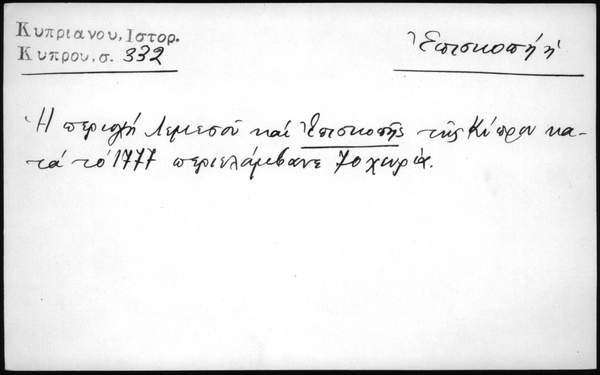 Κυπριανου, Ιστορ.
Κυπρου, σ. 332
Ἐπισκοπή ἡ
Ἡ περιοχή Λεμεσοῦ καί Ἐπισκοπῆς τῆς Κύπρου κα-
τά τό 1777 περιελάμβανε 70 χωριά.